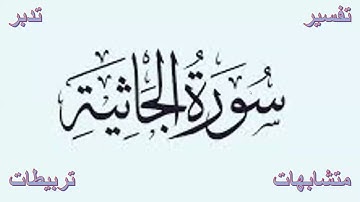 تفسير تدبر
سُورَةُ الجَاثِيَةِ
متشابهات تربيطات